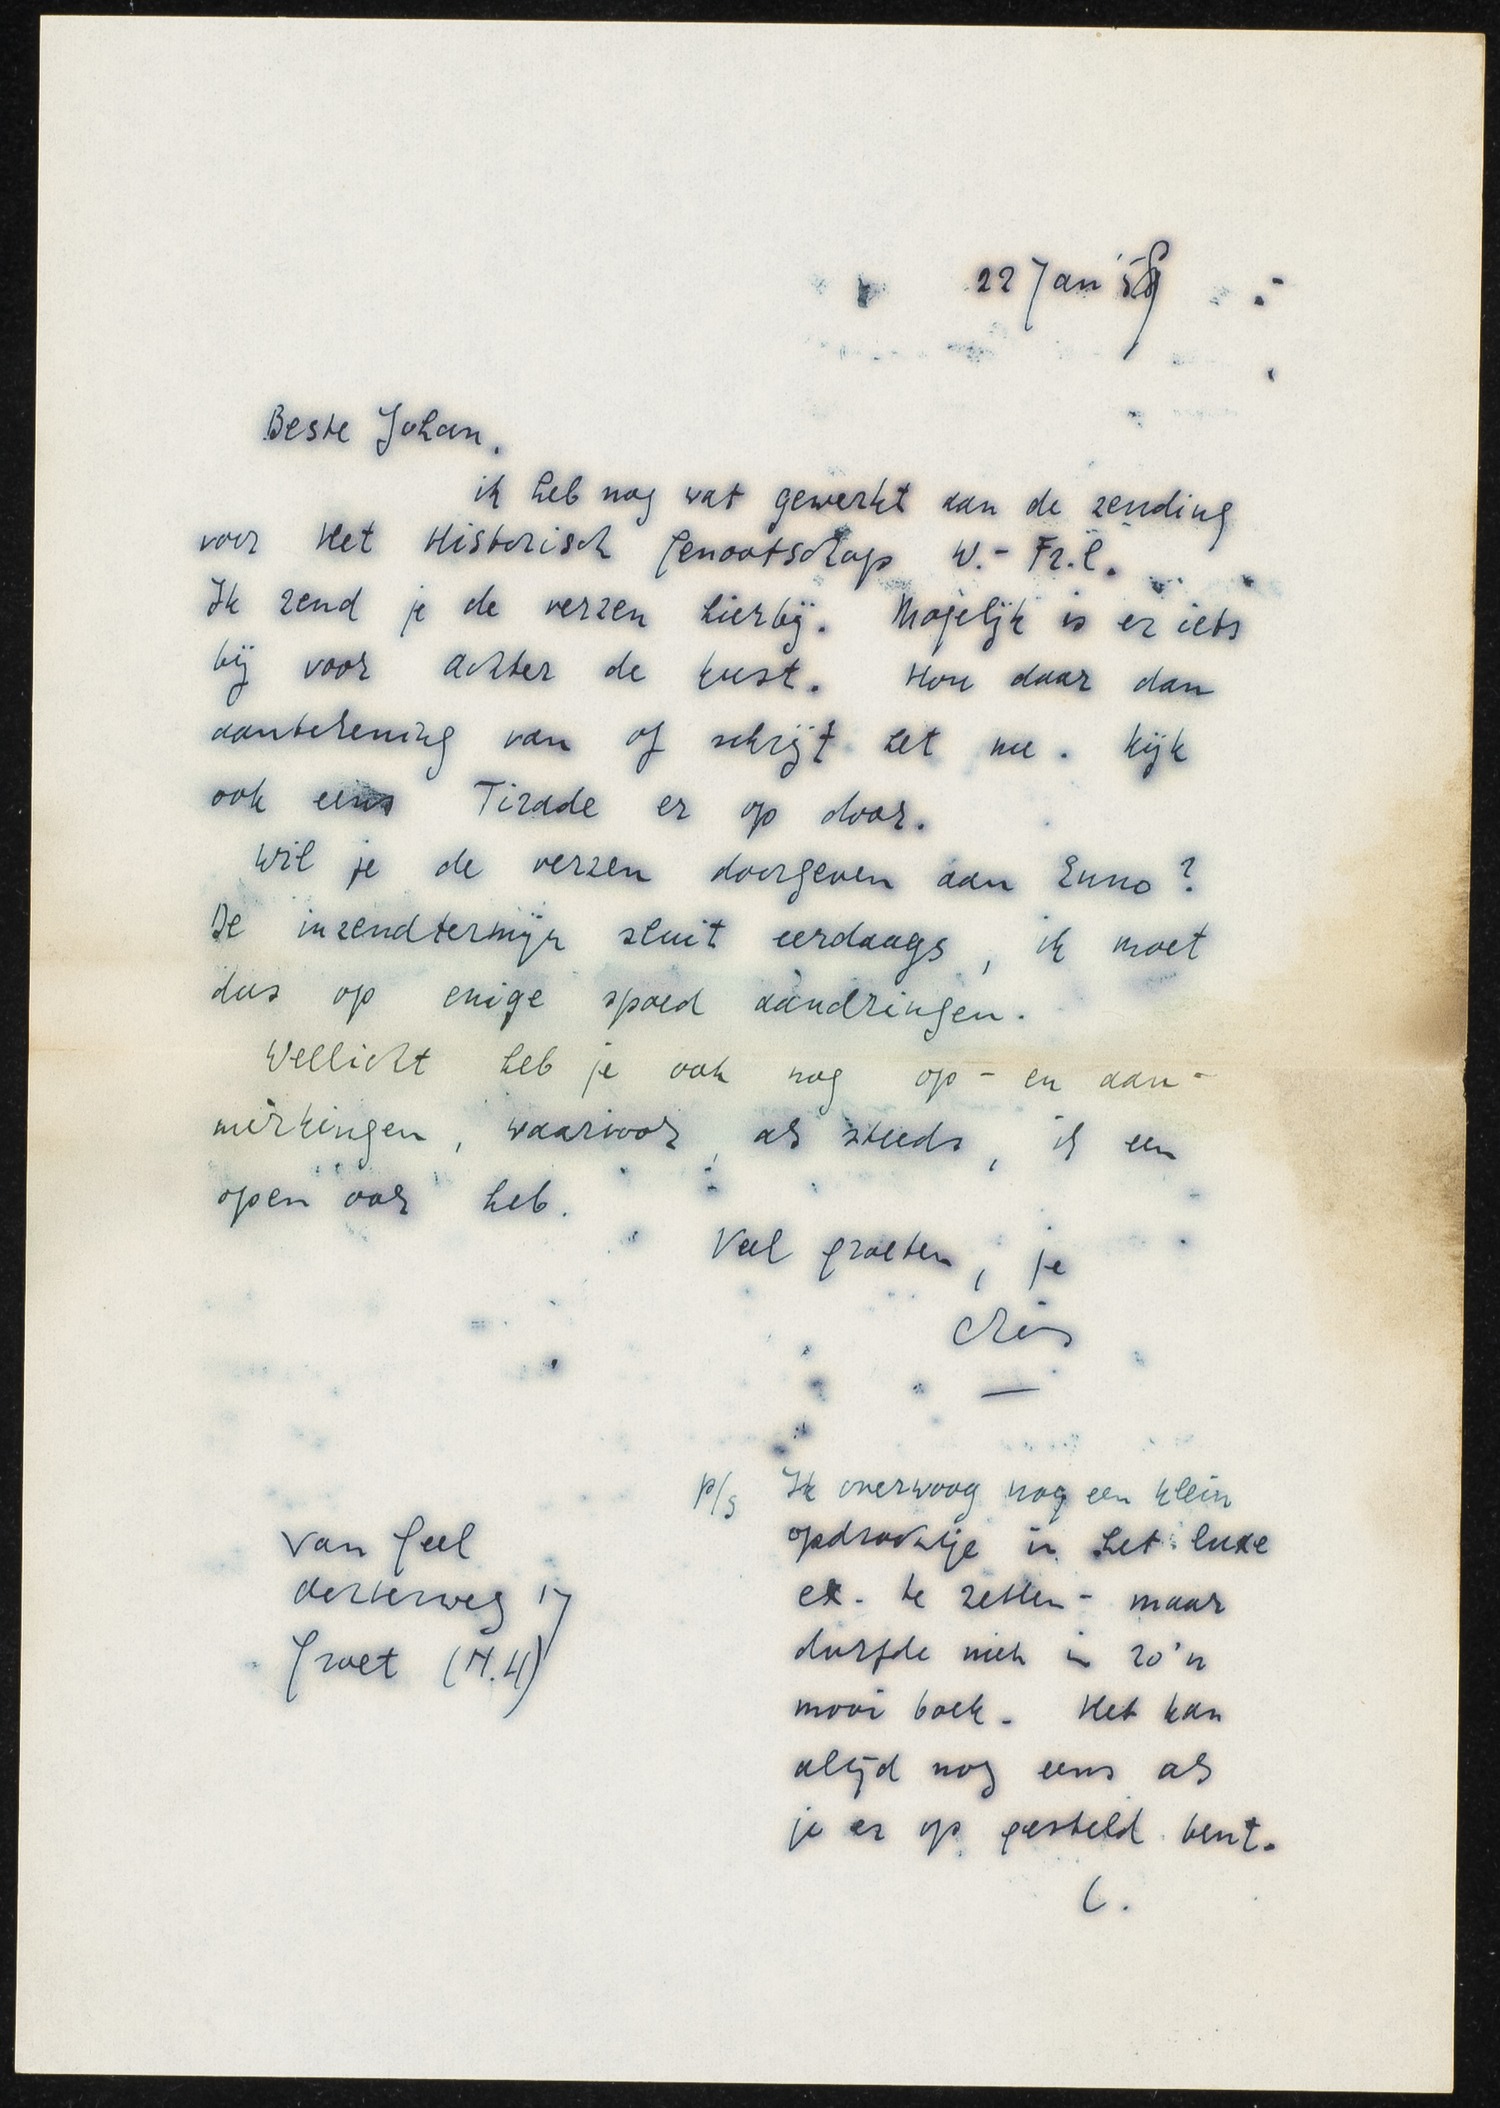 22 Jan '59
Beste Johan,
ik heb nog wat gewerkt aan de zending
voor Het Historisch Genootschap W.- Fr.l.
Ik zend je de verzen hierbij. Mogelijk is er iets
bij voor achter de kust. Hou daar dan
aantekening van of schrijf het me. Kijk
ook eens Tirade er op door.
Wil je de verzen doorgeven aan Enno?
De inzendtermijn sluit eerdaags, ik moet
dus op enige spoed aandringen.
Wellicht heb je ook nog op- en aan-
merkingen, waarvoor, als steeds, ik een
open oor heb.
Veel groeten, je
Chris
P/s Ik overwoog nog een klein
opdrachtje in het luxe
ex. te zetten - maar
durfde niet in zo'n
mooi boek. Het kan
altijd nog eens als
je er op gesteld bent.
C.
Van Geel
Achterweg 17
Groet (N.H)